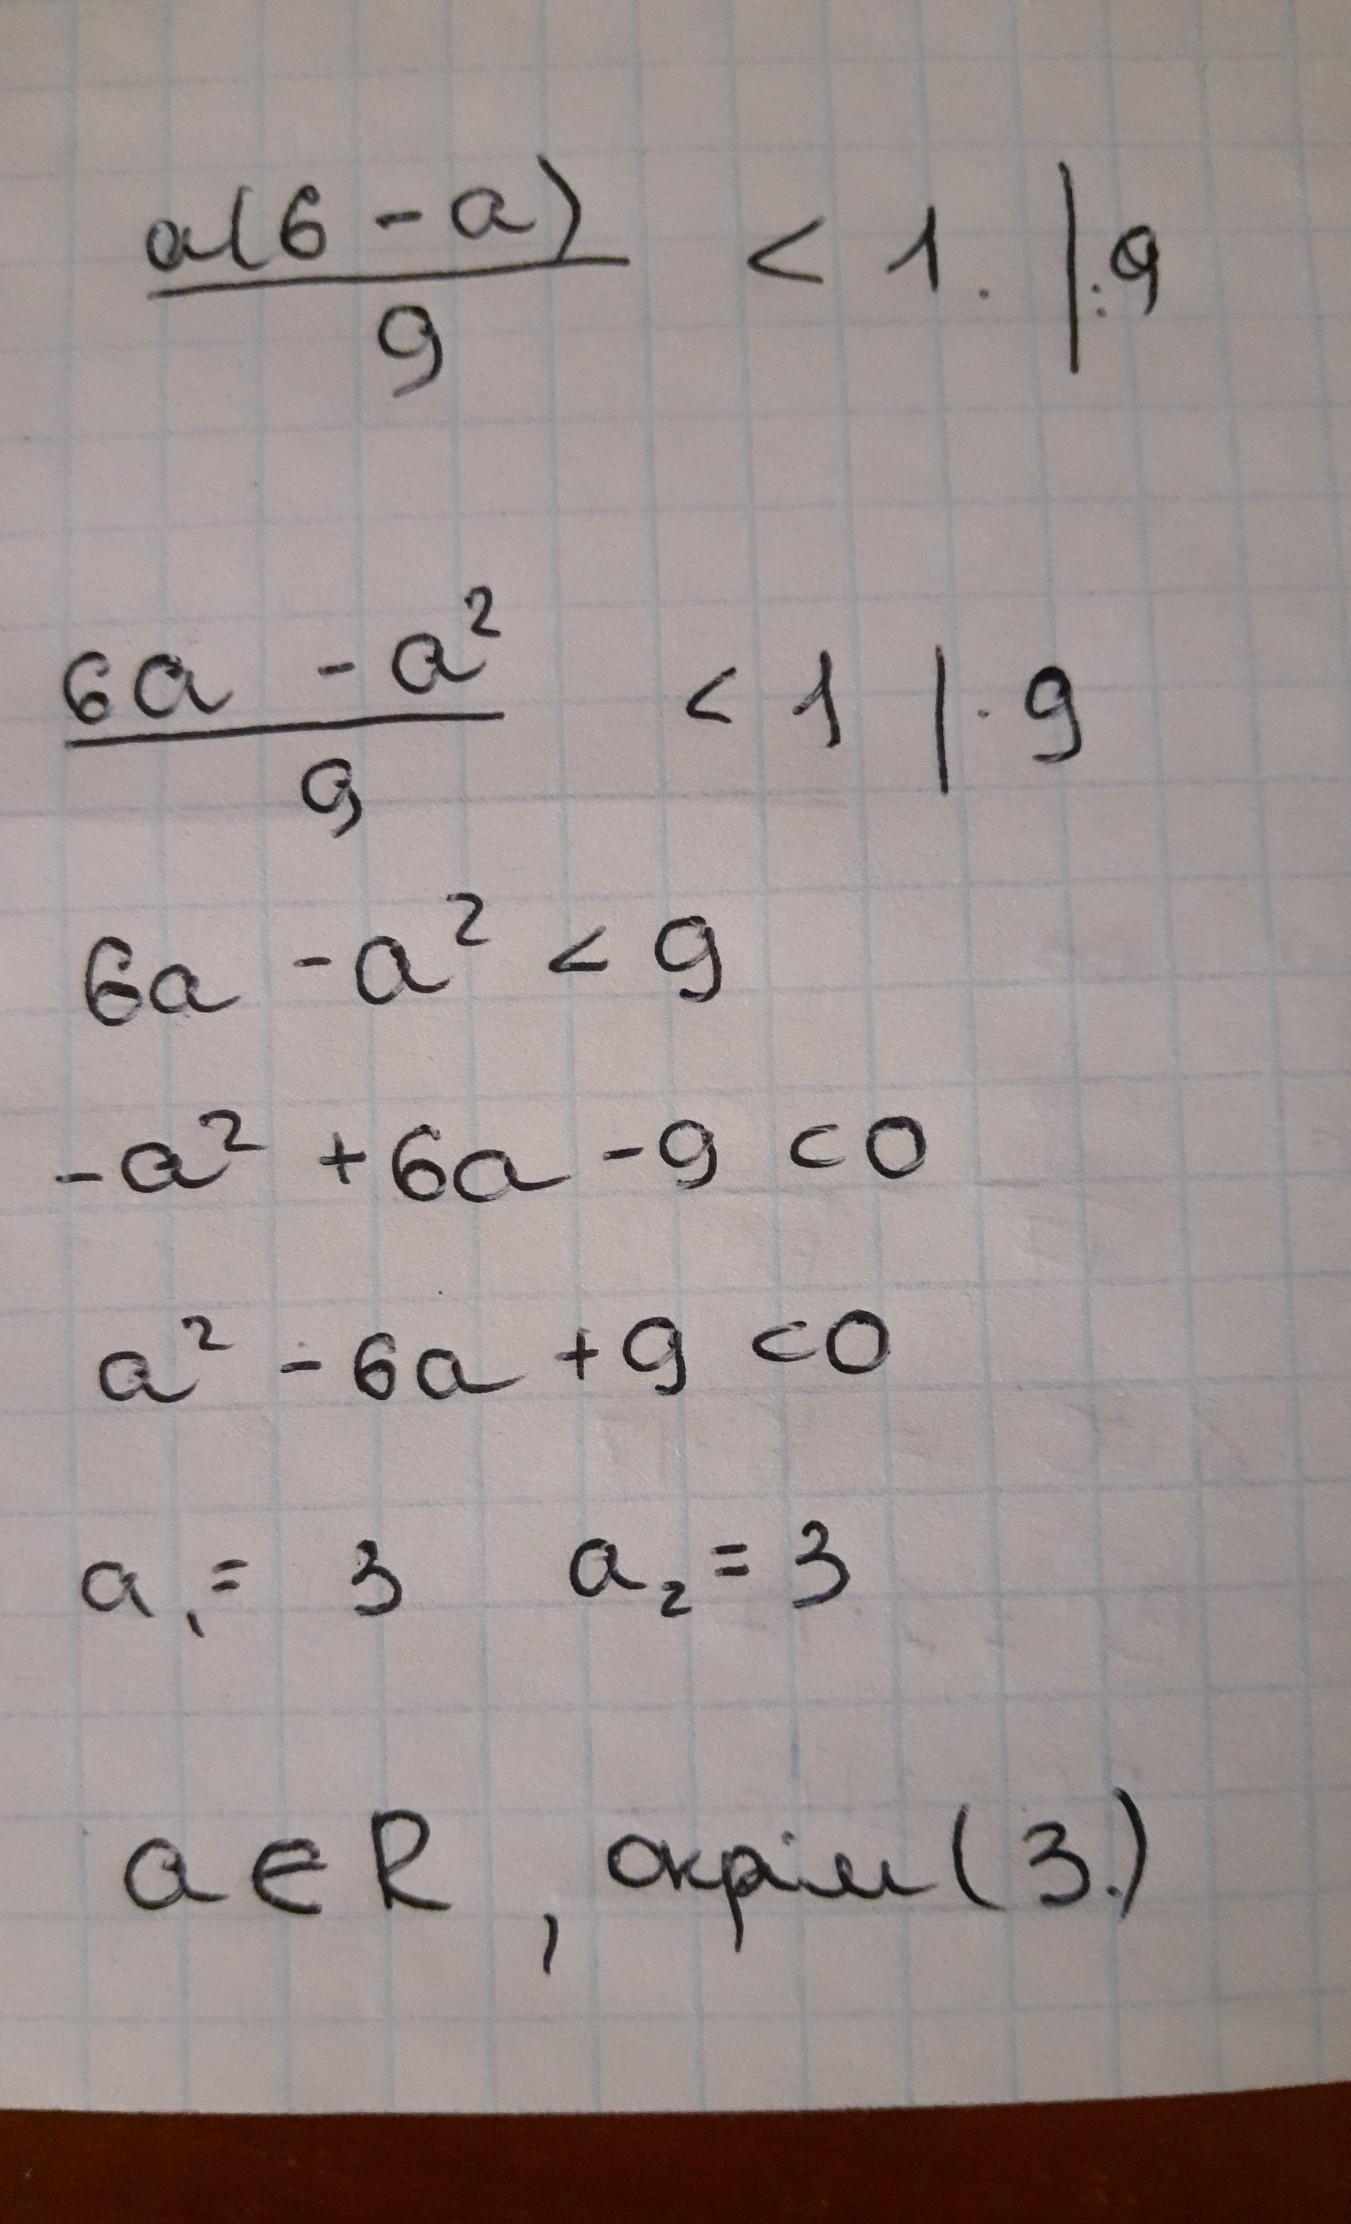 a(6 - a)
9
< 1. | :9
6a - a²
9
< 1 | · 9
6a - a² < 9
-a² + 6a - 9 < 0
a² - 6a + 9 < 0
a₁ = 3 a₂ = 3
a ∈ R, окрім (3.)